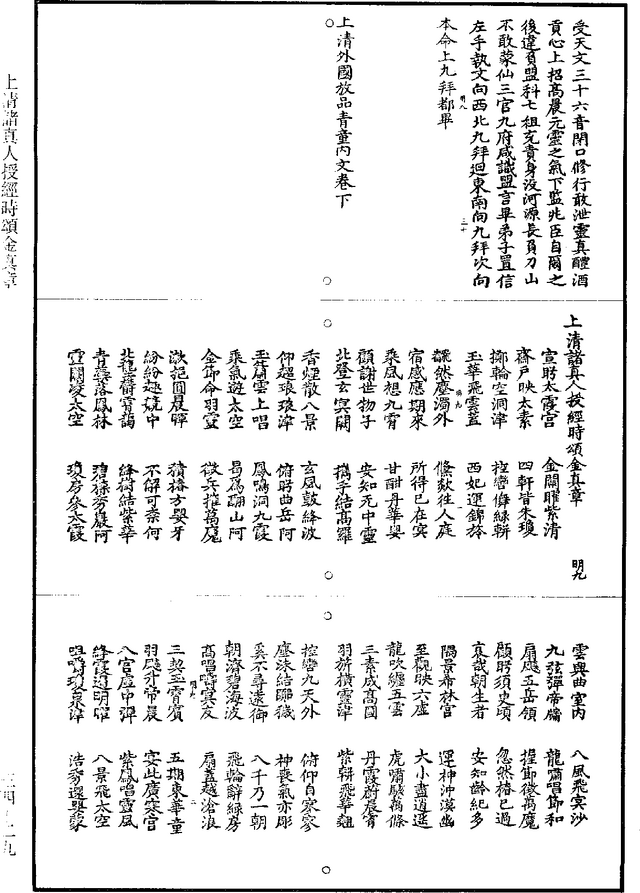 受天文三十六音閉口修行敢泄靈真醴酒
貢心上招高晨元靈之氣下監兆臣自爾之
後違負盟科七祖充責身沒河源長負刀山
不敢蒙仙三官九府咸識盟言畢弟子置信
左手執文向西北九拜迴東南向九拜次向
本命上九拜都畢
上清外國放品青童內文卷下
上清諸真人授經時頌金真章
明九
宣眄太霞宮 金闕曜紫清
齋戶映太素 四軒皆朱瓊
擲輪空洞津 控轡儛綠軿
玉華飛雲蓋 西妃運錦旍
飜然塵濁外 儵欻往人庭
宿感應期來 所得已在冥
乘風想九霄 甘酣丹華嬰
顧謝世物子 安知死中靈
北登玄冥闕 攜手結高羅
香煙散八景 玄風鼓絳波
仰超琅琅津 俯眄曲岳阿
玉簫雲上唱 鳳鳴洞九霞
乘氣遊太空 曷為翮山阿
金仰命羽靈 徵兵摧萬魔
漱挹圓晨暉 積格方嬰牙
紛紛趣競中 不解可柰何
北 絳樹結紫華
青蕊落鳳林 碧條夯巖阿
靈闕凌太空 瓊房參太霞
雲輿曲室內 八風飛冥沙
九弦彈帝 龍嘯唱節和
扇飈五岳領 握節徵萬魔
顧眄須史頃 忽然椿已過
哀哉朝生者 安知齡紀多
陽景希林宮 運神沖漠幽
至觀映六虛 大小盡逍遥
龍吹纏五雲 虎嘯髮萬條
三素成高國 丹霞蔚晨霄
羽旂橫雲津 紫軿飛華翹
控轡九天外 俯仰自寥寥
塵沫結聯穢 神喪氣亦彫
奚不尋遠御 八千乃一朝
朝濟碧海波 飛輪辭綠房
高唱 冥友 扇蓋越滄浪
三契玉霄賓 五期東華童
羽飈升帝晨 宴此廣寒宮
八宮虛中彈 紫鳳唱靈風
絳霞逸明曜 八景飛太空
上清諸真人授經時頌金真章